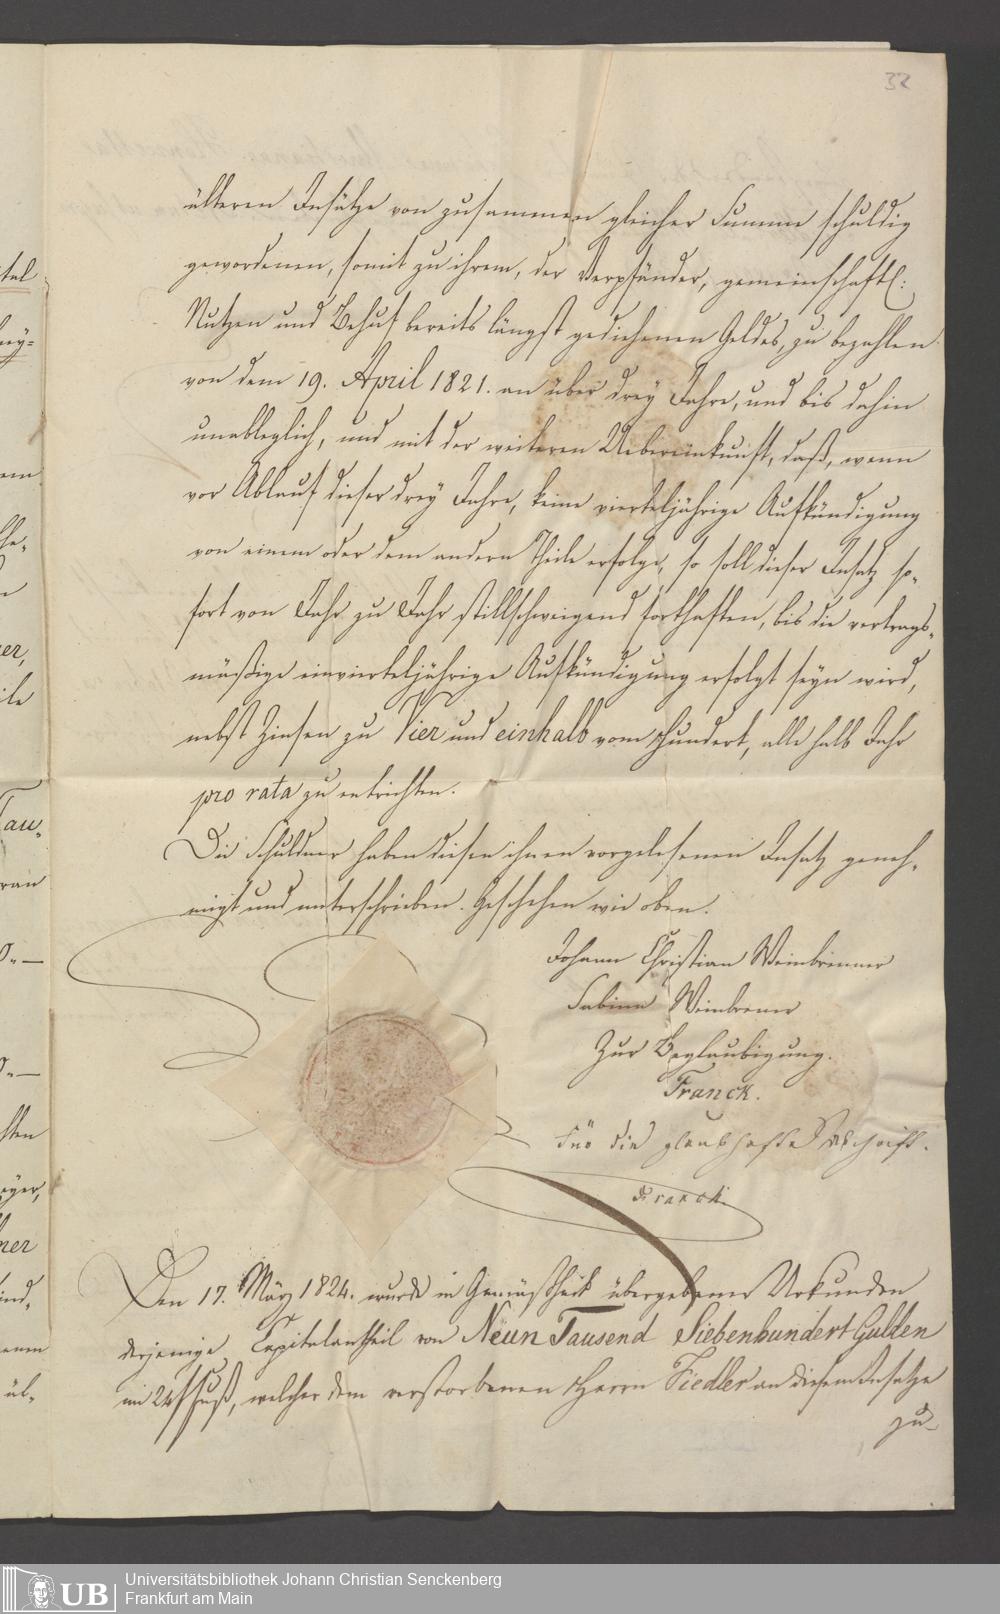 32
älteren Insätze von zusammen gleicher Summe schuldig
gewordenen, somit zu ihrem, der Verpfänder, gemeinschaftl:
Nutzen und Behuf bereits längst gediehenen Geldes, zu bezahlen
von dem 19. April 1821. an über drey Jahre, und bis dahin
unableglich, und mit der weiteren Uebereinkunft, daß, wenn
vor Ablauf dieser drey Jahre, keine vierteljährige Aufkündigung
von einem oder dem andern Theile erfolge, so soll dieser Insatz so-
fort von Jahr zu Jahr stillschweigend forthaften, bis die vertrags-
mäßige einvierteljährige Aufkündigung erfolgt seyn wird,
nebst Zinsen zu Vier und einhalb vom Hundert, alle halb Jahr
pro rata zu entrichten.
Die Schuldner haben diesen ihnen vorgelesenen Insatz geneh-
migt und unterschrieben. Geschehen wie oben.
Johann Christian Weinbrenner
Sabina Weinbrener
Zur Beglaubigung.
Franck.
Für die glaubhafte Abschrift.
Franck.
Den 17. März 1824. wurde in Gemäßheit übergebener Urkunden
derjenige Capitalantheil von Neun Tausend Siebenhundert Gulden
im 24 f Fuß, welcher dem verstorbenen Herrn Fiedler an diesem Insatze
zu-
tal
ney-
em
er,
ile
Tau-
ran
hten
eyer,
ner
ind-
enem
ül-
UB
Universitätsbibliothek Johann Christian Senckenberg
Frankfurt am Main